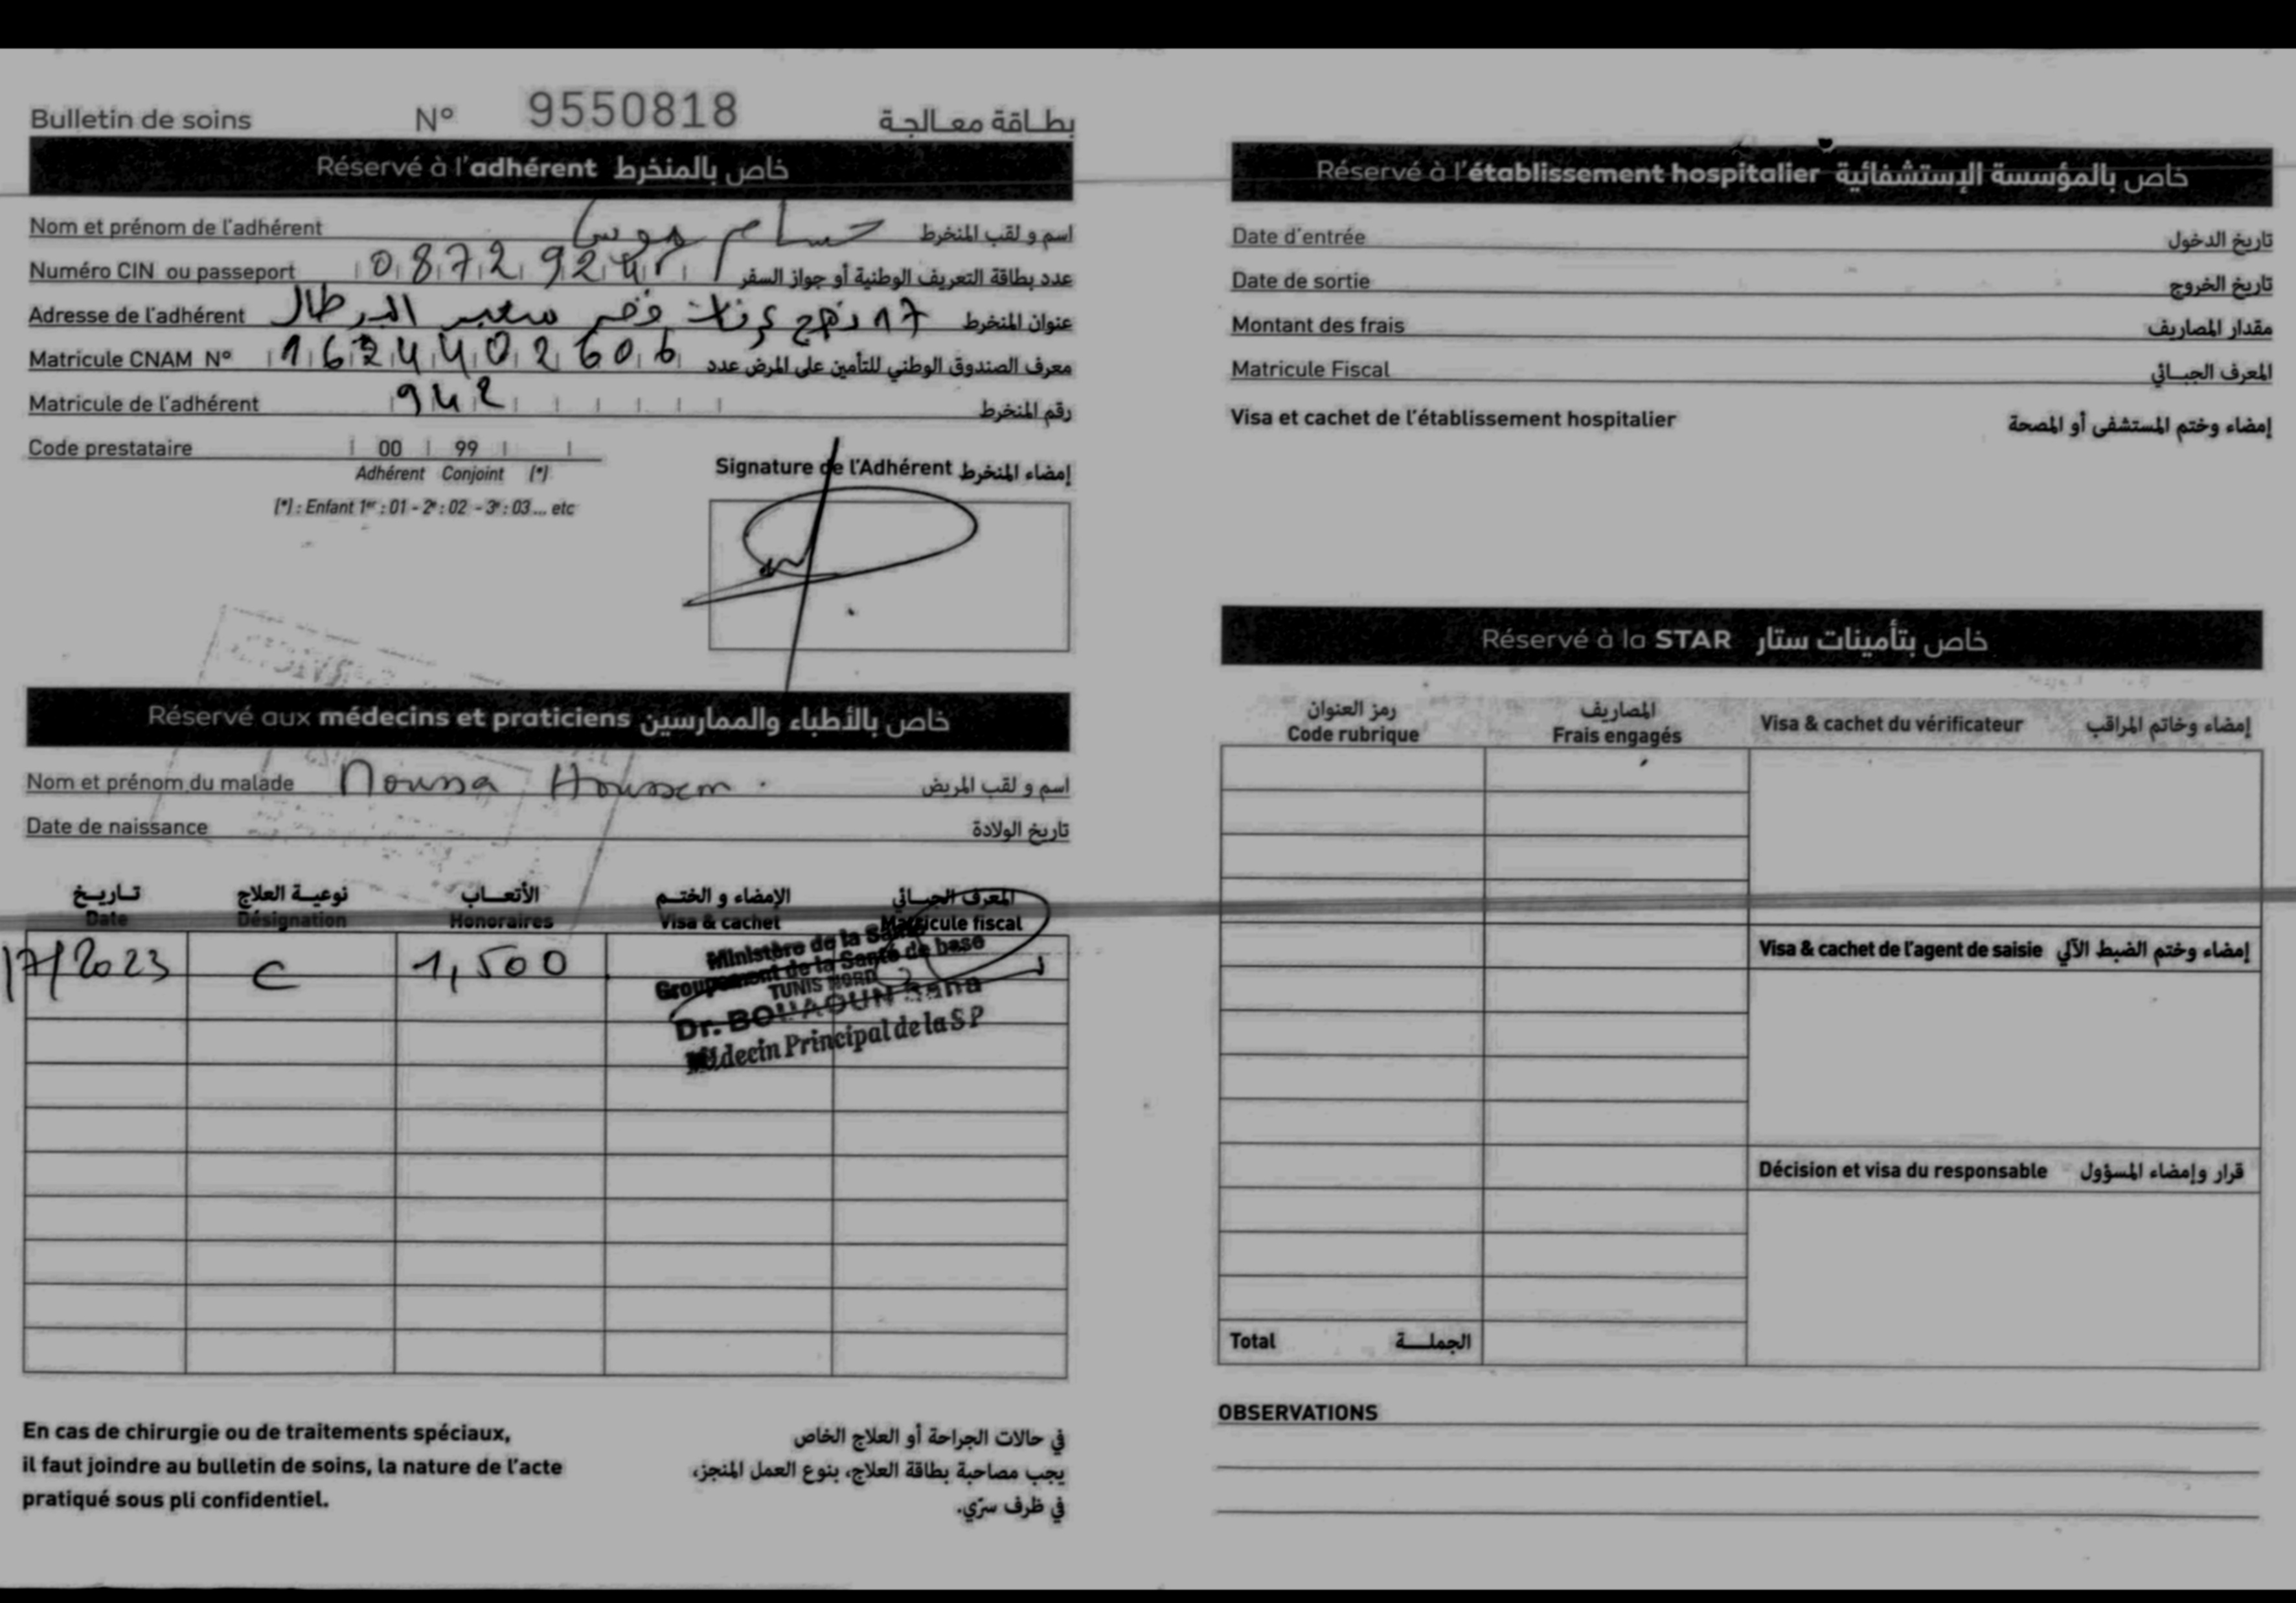 Bulletin de soins N° 9550818 بطاقة معالجة
Réservé à l'adhérent خاص بالمنخرط
Nom et prénom de l'adhérent حسام موسى اسم و لقب المنخرط
Numéro CIN ou passeport 0872924 عدد بطاقة التعريف الوطنية أو جواز السفر
Adresse de l'adhérent 17 نهج عرفات قصر سعيد البرطال عنوان المنخرط
Matricule CNAM N° 1624402606 معرف الصندوق الوطني للتأمين على المرض عدد
Matricule de l'adhérent 942 رقم المنخرط
Code prestataire 00 99
Adhérent Conjoint (*)
(*) : Enfant 1er : 01 - 2e : 02 - 3e : 03 ... etc
Signature de l'Adhérent إمضاء المنخرط
Réservé aux médecins et praticiens خاص بالأطباء والممارسين
Nom et prénom du malade Moussa Houssem . اسم و لقب المريض
Date de naissance تاريخ الولادة
تاريخ نوعية العلاج الأتعاب الإمضاء و الختم المعرف الجبائي
Date Désignation Honoraires Visa & cachet Matricule fiscal
17/2023 C 1,500
Ministère de la Santé
Groupement de la Santé de base
TUNIS NORD
Dr. BOUAOUN Rana
Médecin Principal de la S P
En cas de chirurgie ou de traitements spéciaux,
il faut joindre au bulletin de soins, la nature de l'acte
pratiqué sous pli confidentiel.
في حالات الجراحة أو العلاج الخاص
يجب مصاحبة بطاقة العلاج، بنوع العمل المنجز،
في ظرف سرّي.
Réservé à l'établissement hospitalier خاص بالمؤسسة الإستشفائية
Date d'entrée تاريخ الدخول
Date de sortie تاريخ الخروج
Montant des frais مقدار المصاريف
Matricule Fiscal المعرف الجبائي
Visa et cachet de l'établissement hospitalier إمضاء وختم المستشفى أو المصحة
Réservé à la STAR خاص بتأمينات ستار
رمز العنوان المصاريف
Code rubrique Frais engagés Visa & cachet du vérificateur إمضاء وخاتم المراقب
Visa & cachet de l'agent de saisie إمضاء وختم الضبط الآلي
Décision et visa du responsable قرار وإمضاء المسؤول
Total الجملة
OBSERVATIONS